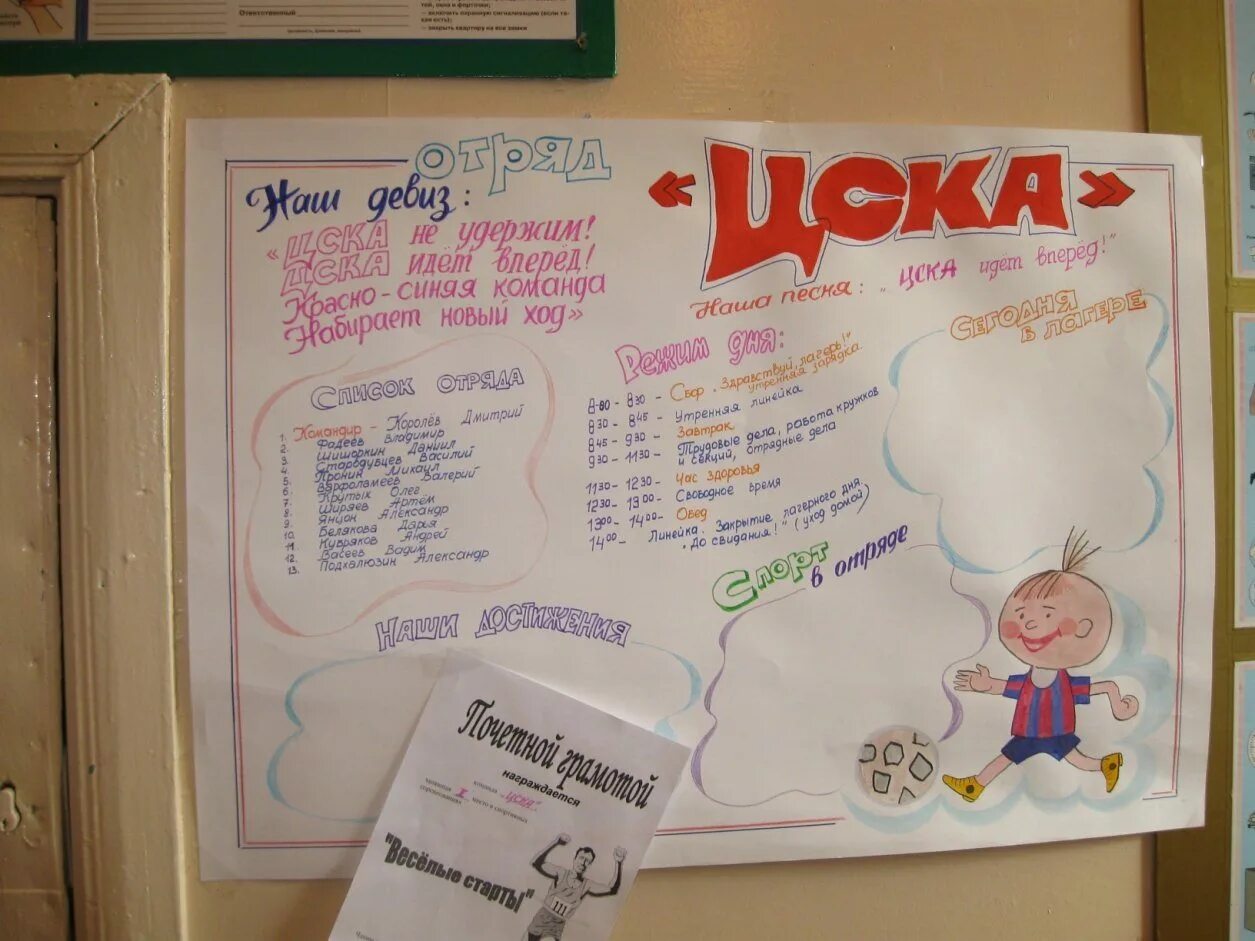 Ответственный
(должность, фамилия, инициалы)
той, окна и форточки;
— включить охранную сигнализацию (если та-
кая есть);
— закрыть квартиру на все замки
отряд
« ЦСКА »
Наш девиз:
«ЦСКА не удержим!
ЦСКА идёт вперёд!
Красно-синяя команда
Набирает новый ход»
Наша песня: „ЦСКА идёт вперёд!"
Список отряда
1. Командир - Королёв Дмитрий
2. Фадеев Владимир
3. Шишоркин Даниил
4. Стародубцев Василий
5. Пронин Михаил
6. Варфоламеев Валерий
7. Крутых Олег
8. Ширяев Артём
9. Янцон Александр
10. Белякова Дарья
11. Кувряков Андрей
12. Васеев Вадим
13. Подкалюзин Александр
Режим дня:
8-00 - 8 30 - Сбор. „Здравствуй, лагерь!"
утренняя зарядка
8 30 - 8 45 - Утренняя линейка
8 45 - 9 30 - Завтрак
9 30 - 11 30 - Трудовые дела, работа кружков
и секций, отрядные дела
11 30 - 12 30 - Час здоровья
12 30 - 13 00 - Свободное время
13 00 - 14 00 - Обед
14 00 - Линейка. Закрытие лагерного дня.
„До свидания!" (уход домой)
Сегодня
в лагере
Спорт
в отряде
Наши достижения
Почетной грамотой
награждается
команда „ЦСКА"
занявшая I место в спортивных
соревнованиях
"Весёлые старты"
111